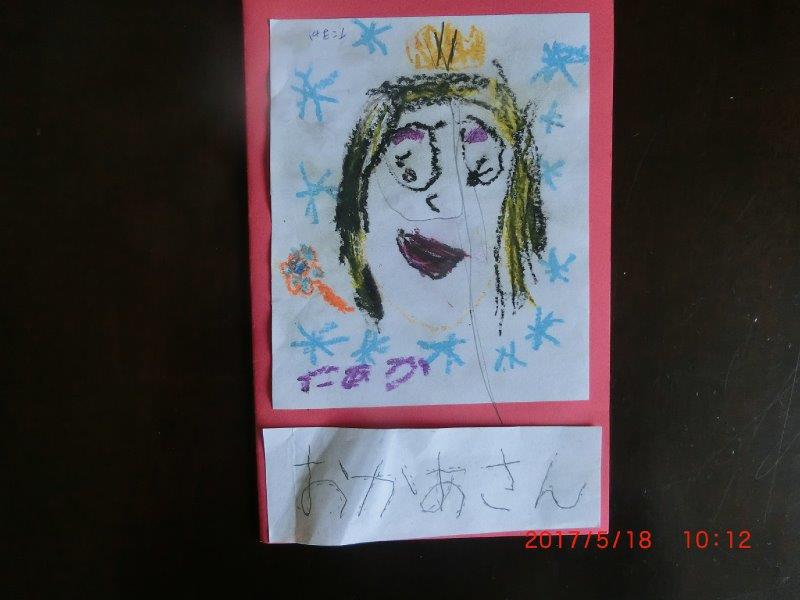 おかあさん
2017/5/18 10:12